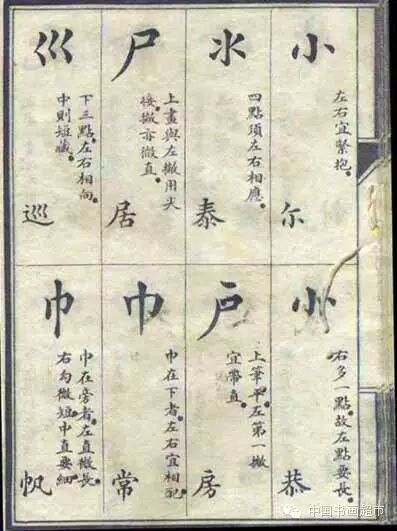 小
左右宜緊抱。
尔
氺
四點須左右相應。
泰
尸
上畫與左撇用尖
接撇亦微直。
居
巛
下三點左右相向。
中則短藏。
巡
㣺
右多一點。故左點要長。
恭
戶
上筆平。左第一撇
宜帶直。
房
巾
巾在下者。左右宜相配。
常
巾
巾在旁者。左直微長。
右勾微短。中直要細。
帆
中国书画超市